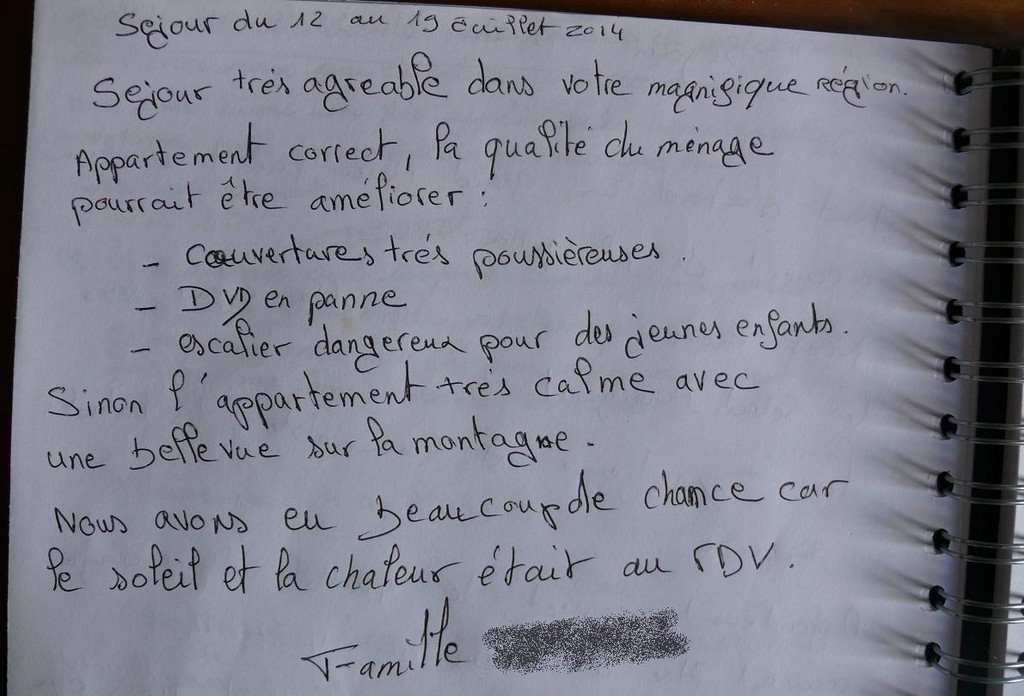 Sejour du 12 au 19 Juillet 2014
Sejour trés agreable dans votre magnifique région.
Appartement correct, la qualité du ménage
pourrait être améliorer :
- Couvertures trés poussièreuses.
- DVD en panne
- escalier dangereux pour des jeunes enfants.
Sinon l'appartement trés calme avec
une belle vue sur la montagne.
Nous avons eu beaucoup de chance car
le soleil et la chaleur était au RDV.
Famille